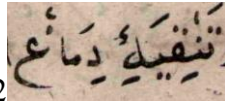 تَنْقِيَهٔ دِمَاغ
2